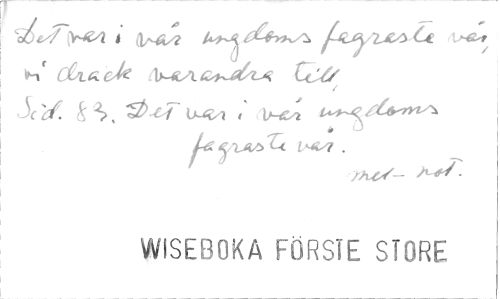 Det var i vår ungdoms fagraste vår,
vi drack varandra till,
Sid. 83. Det var i vår ungdoms
fagraste vår.
mel- not.
WISEBOKA FÖRSTE STORE